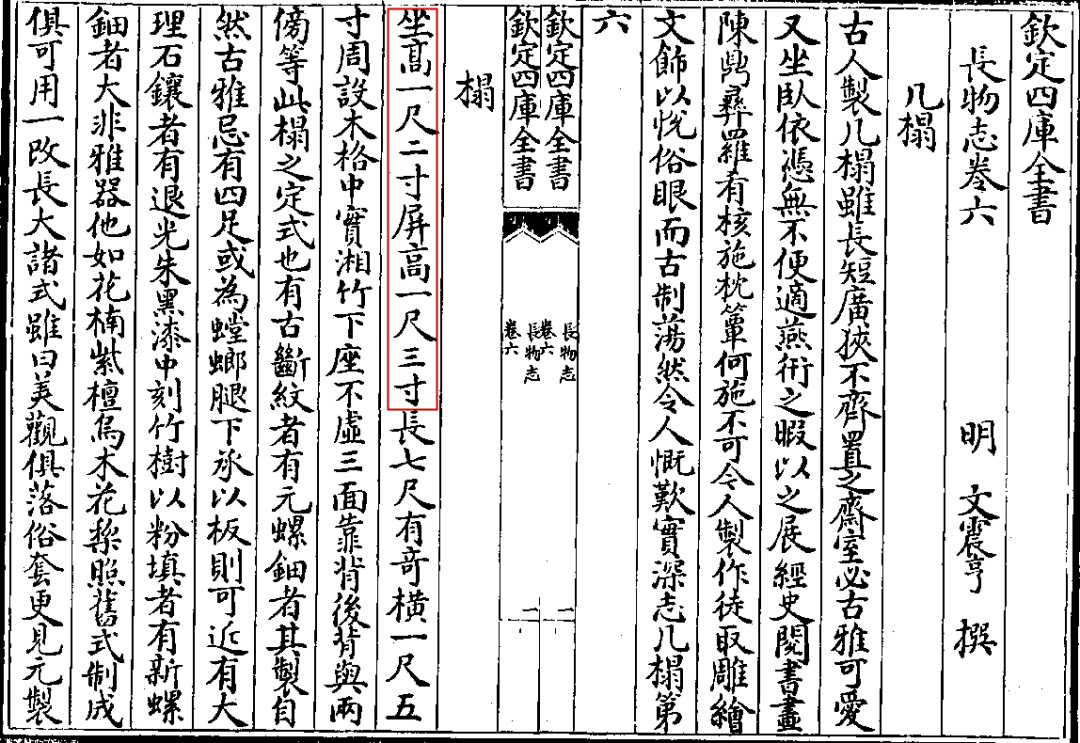 欽定四庫全書
長物志卷六
明 文震亨 撰
几榻
古人製几榻雖長短廣狹不齊置之齋室必古雅可愛
又坐臥依憑無不便適燕衎之暇以之展經史閱書畫
陳鼎彝羅肴核施枕簟何施不可令人製作徒取雕繪
文飾以悅俗眼而古制蕩然令人慨歎實深志几榻第
六
欽定四庫全書
長物志
卷六
一
欽定四庫全書
長物志
卷六
一
榻
坐高一尺二寸屏高一尺三寸長七尺有奇橫一尺五
寸周設木格中實湘竹下座不虛三面靠背後背與兩
傍等此榻之定式也有古斷紋者有元螺鈿者其製自
然古雅忌有四足或為螳螂腿下承以板則可近有大
理石鑲者有退光朱黑漆中刻竹樹以粉填者有新螺
鈿者大非雅器他如花楠紫檀烏木花梨照舊式制成
俱可用一改長大諸式雖曰美觀俱落俗套更見元製